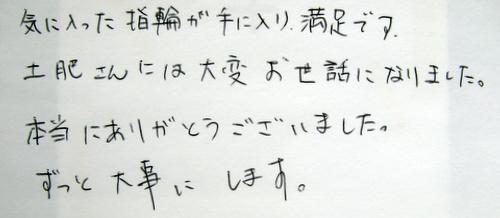 気に入った指輪が手に入り、満足です。
土肥さんには大変お世話になりました。
本当にありがとうございました。
ずっと大事にします。